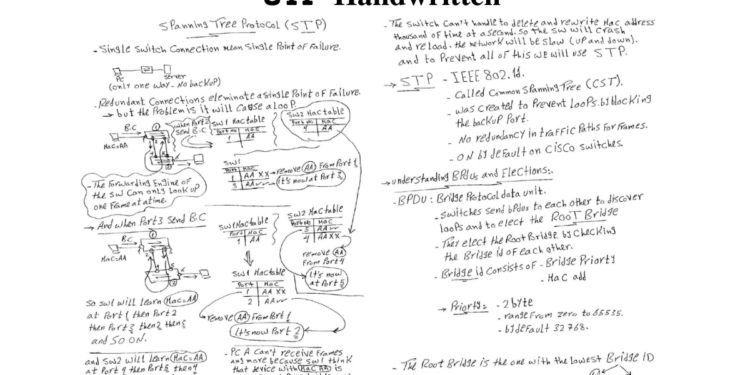 STP Handwritten
Spanning Tree Protocol (STP)
- Single switch Connection mean Single Point of Failure.
PC
Server
(only one way - No backup)
- Redundant Connections eleminate a single Point of Failure.
→ but the Problem is it will Cause a loop.
B.C
MAC=AA
when Port 2
Send B.C
SW1 MAC table
Port no | MAC
1 | AA
SW2 MAC table
Port no | MAC
4 | AA
SW1
Port | MAC
1 | AA XX → remove AA From Port 1
3 | AA (It's now at Port 3)
- The Forwarding Engine of
the SW Can only Look up
one Frame at a time.
→ And when Port 3 Send B.C
B.C
MAC=AA
SW1 MAC table
Port | MAC
1 | AA
SW2 MAC table
Port | MAC
5 | AA
4 | AA XX
remove AA
From Port 4
It's now
at Port 5
SW1 MAC table
Port | MAC
1 | AA XX
2 | AA
remove AA From Port 1
It's now Port 2
So SW1 will learn MAC=AA
at Port 1 then Port 2
then Port 3 then 2 then 3
and SO ON.
and SW2 will learn MAC=AA
at Port 4 then Port 5 then 4
- PC A Can't receive Frames
any more because SW1 think
that device with MAC AA is
- The Switch Can't handle to delete and rewrite MAC address
thousand of time at a second. So the SW will Crash
and reload. the network will be slow (up and down).
and to Prevent all of this we will use STP.
→ STP - IEEE 802.1d.
- Called Common Spanning Tree (CST).
- was Created to Prevent loops by blocking
the backup Port.
- No redundancy in traffic Paths For Frames.
- ON by default on Cisco switches.
→ understanding BPDUs and Elections:
- BPDU: Bridge Protocol data unit.
- Switches send bPDUs to each other to discover
loops and to elect the Root Bridge
- They elect the Root Bridge by Checking
the Bridge id of each other.
- Bridge id Consists of - Bridge Priority
- MAC add
→ Priority: - 2 byte
- range From zero to 65535.
- by default 32768.
- The Root Bridge is the one with the lowest Bridge ID